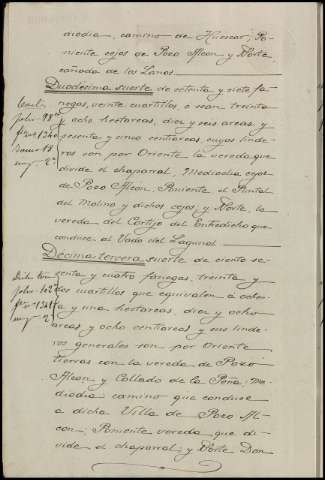 diodia, camino de Huescar; Po-
niente cojos de Pozo Alcon y Norte,
cañada de los Lanos
Duodecima suerte de setenta y siete fa-
negas, veinte cuartillos o sean treinta
y ocho hectareas, diez y seis areas y
sesenta y cinco centiareas, cuyos linde-
ros son por Oriente la vereda que
divide el chaparral, Mediodia cojos
de Pozo Alcon, Poniente el Puntal
del Molino y dichos cojos, y Norte, la
vereda del Cortijo del Entredicho que
conduce al Vado del Lagunal
Decima tercera suerte de ciento se-
senta y cuatro fanegas, treinta y
dos cuartillos que equivalen á ochen-
ta y una hectareas, diez y ocho
areas y ocho centiareas y sus linde-
ros generales son por Oriente
tierras con la vereda de Pozo
Alcon y Collado de la Peña; Me-
diodia camino que conduce
a dicha Villa de Pozo Al-
con; Poniente vereda que di-
vide el chaparral; y Norte Don
folio 98
insº 2ª
folio 102
insº 2ª